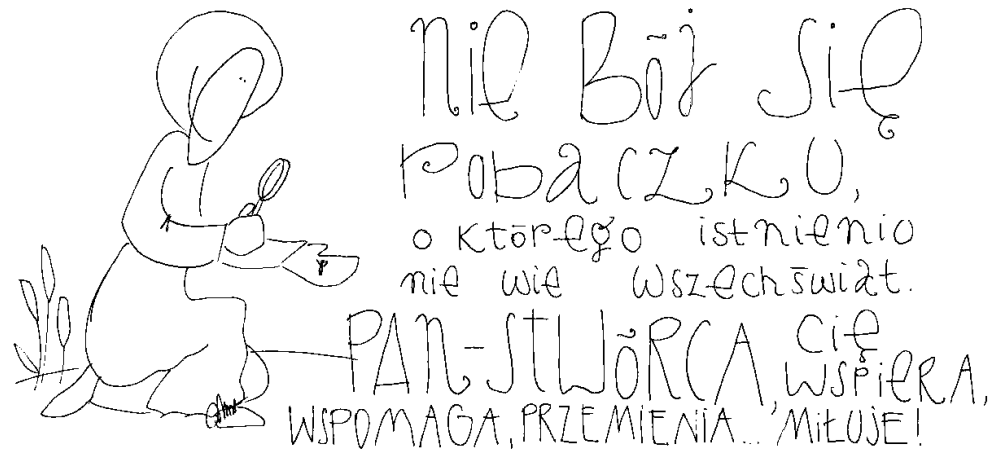 Nie Bój się
robaczku,
o którego istnienio
nie wie wszechświat.
PAN-STWÓRCA, cię wspiera,
WSPOMAGA, PRZEMIENIA... MIŁUJE!